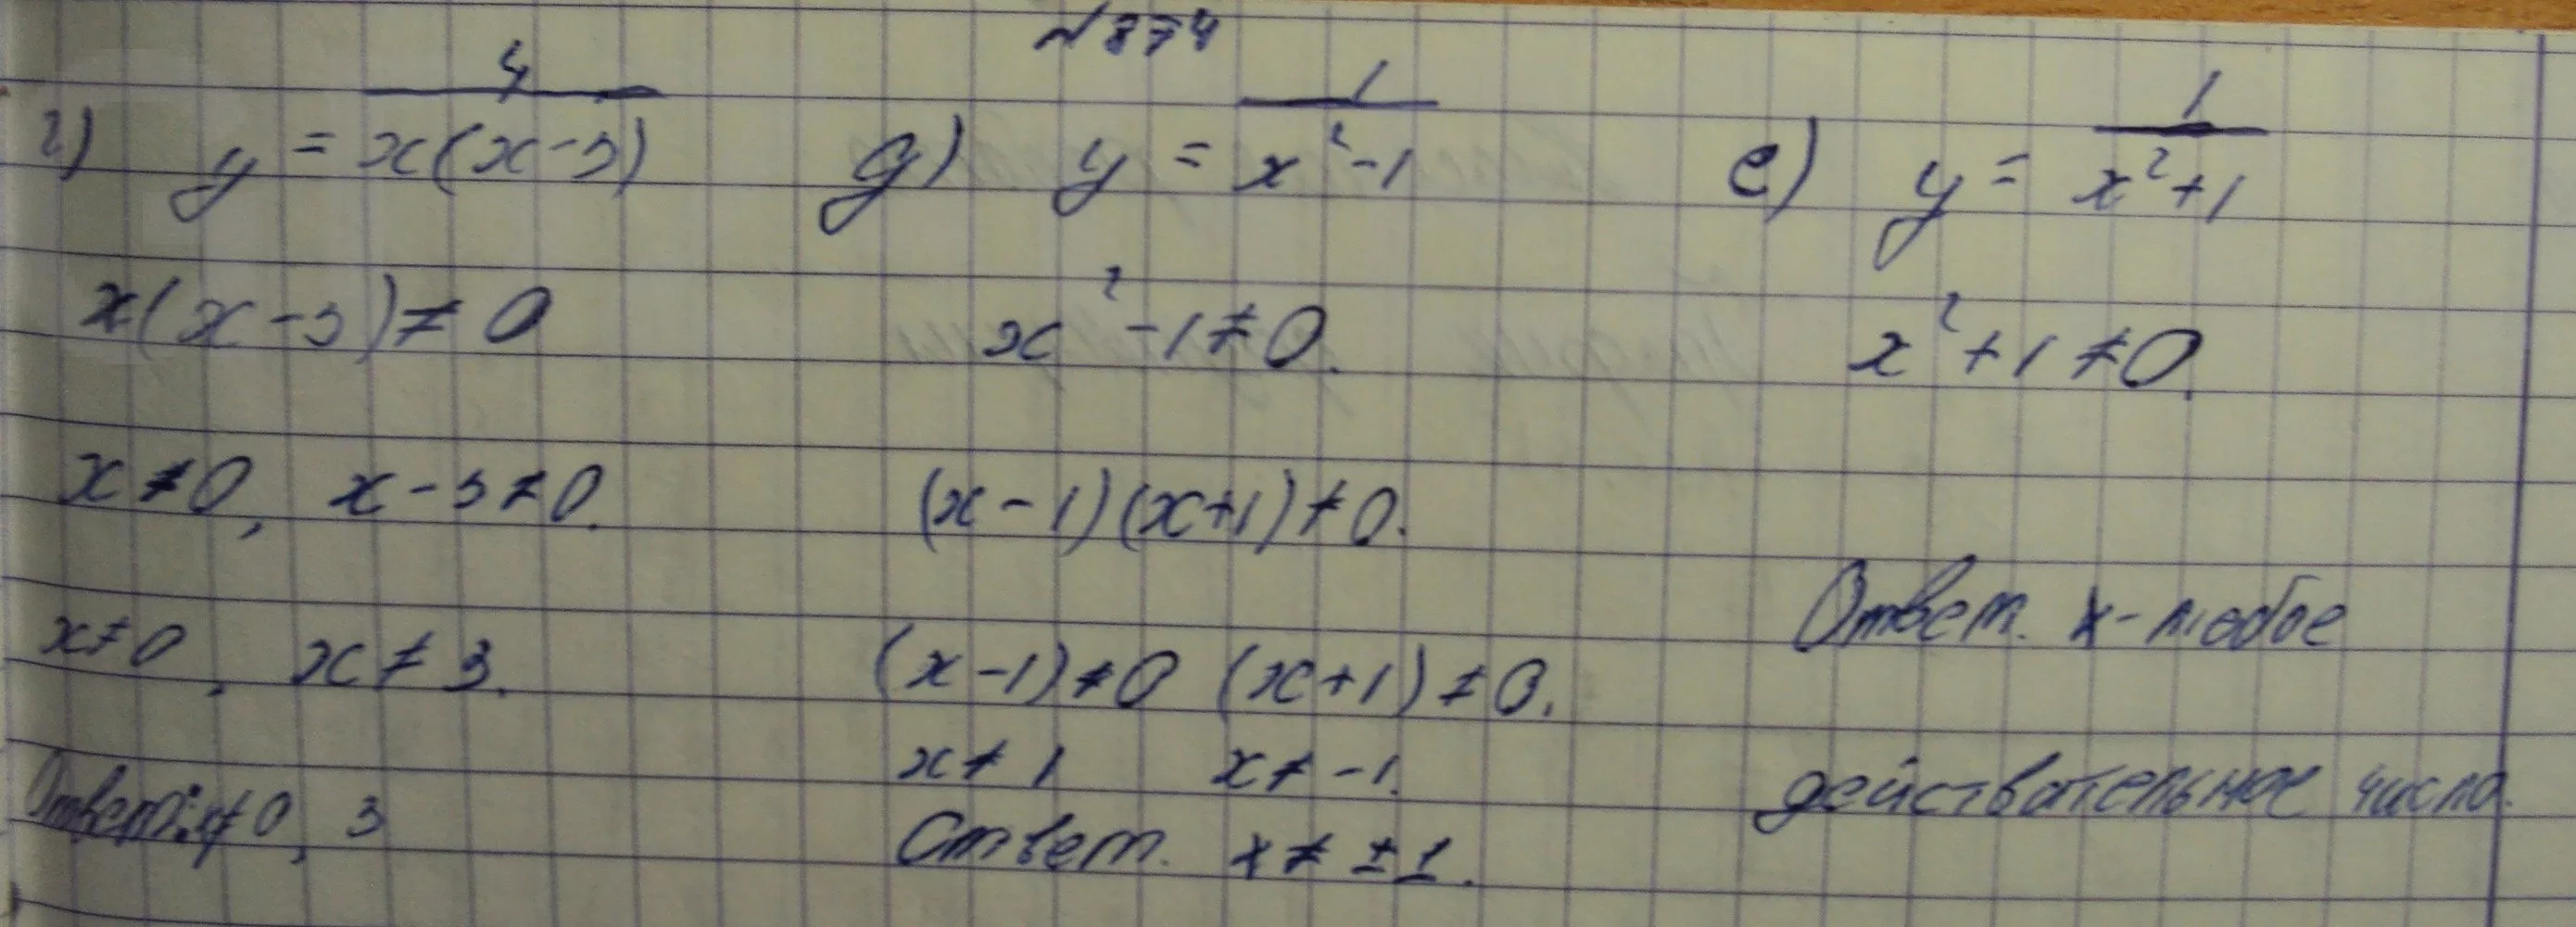 №874
г) y = 4/x(x-3)
x(x-3)≠0
x≠0, x-3≠0.
x≠0, x≠3.
Ответ: x≠0, 3
д) y = 1/x²-1
x²-1≠0.
(x-1)(x+1)≠0.
(x-1)≠0 (x+1)≠0.
x≠1 x≠-1.
Ответ. x≠±1.
е) y = 1/x²+1
x²+1≠0.
Ответ. x-любое
действительное число.